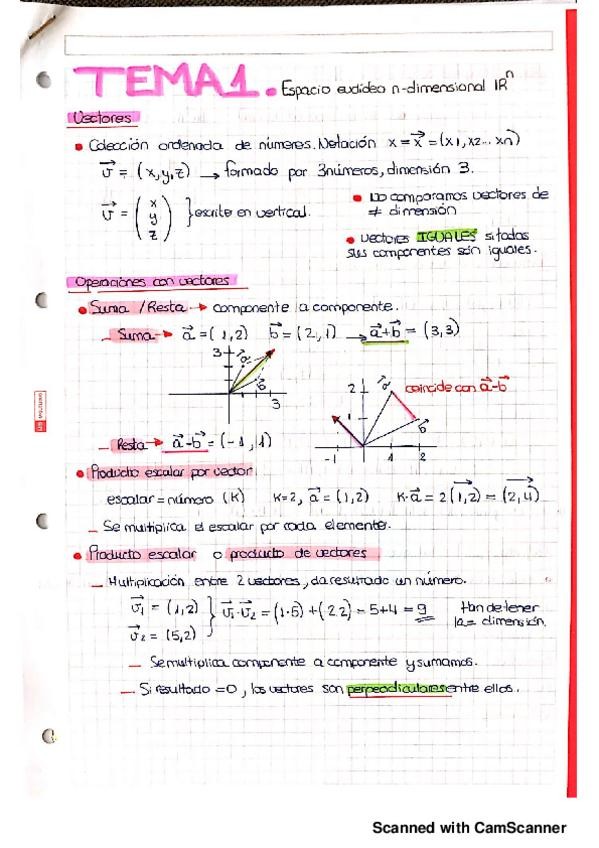 TEMA 1. Espacio euclídeo n-dimensional ℝⁿ
Vectores
• Colección ordenada de números. Notación x = x⃗ = (x1, x2... xn)
v⃗ = (x, y, z) → formado por 3 números, dimensión 3.
v⃗ = (x y z) } escrito en vertical.
• No comparamos vectores de
≠ dimensión
• Vectores IGUALES si todas
sus componentes son iguales.
Operaciones con vectores
• Suma / Resta → componente a componente.
– Suma → a⃗ = (1,2) b⃗ = (2,1) → a⃗+b⃗ = (3,3)
3 a⃗ b⃗ 3
2 a⃗ coincide con a⃗-b⃗
1 b⃗
-1 1 2
– Resta → a⃗-b⃗ = (-1,1)
• Producto escalar por vector
escalar = número (K) K=2, a⃗ = (1,2) K·a⃗ = 2(1,2) = (2,4)
– Se multiplica el escalar por cada elemento.
• Producto escalar o producto de vectores
– Multiplicación entre 2 vectores, da resultado un número.
v⃗₁ = (1,2)
v⃗₂ = (5,2)
} v⃗₁·v⃗₂ = (1·5) + (2·2) = 5+4 = 9
Han de tener
la = dimensión.
– Se multiplica componente a componente y sumamos.
– Si resultado = 0, los vectores son perpendiculares entre ellos.
Scanned with CamScanner